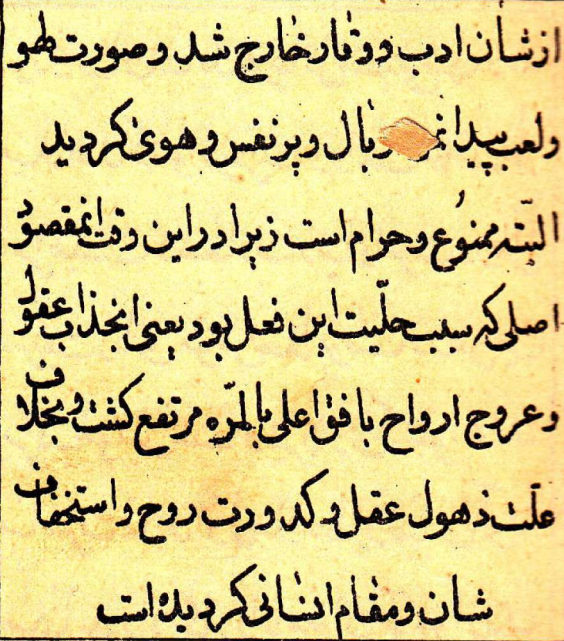 از شان ادب و وقار خارج شد و صورت لهو
ولعب پیدا بال و پر نفس و هوی کردید
البتّه ممنوُع و حرام است زیرا در این وقت انمقصوُد
اصلی که سبب حلّیت این فعل بود یعنی انجذاب عقول
و عروج ارواح بافق اعلی بالمرّه مرتفع کشت و بخلاف
علّت ذهول عقل و کدورت روح و استخفاف
شان و مقام انسانی کردیده است